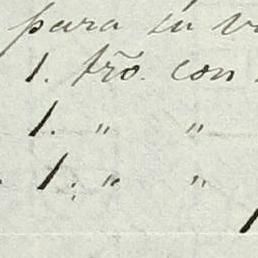 para su v
1. trõ. con
1. " "
1. " "